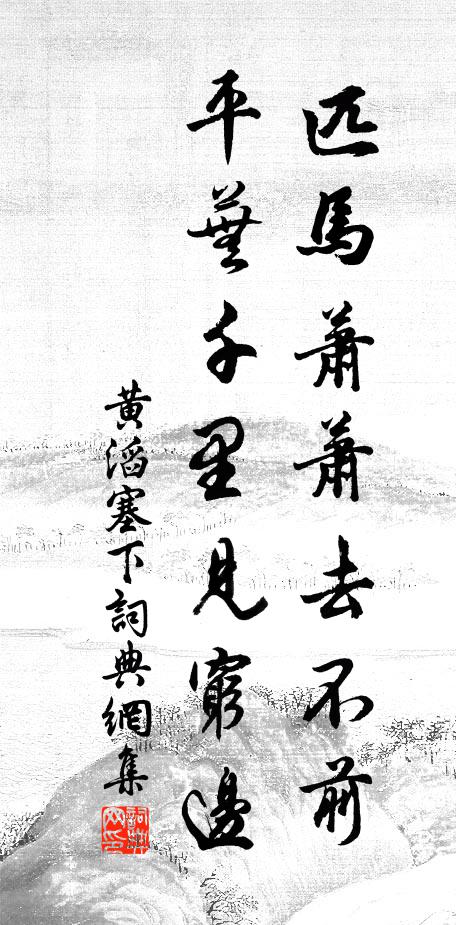 匹馬蕭蕭去不前
平蕪千里見窮邊
黃滔塞下詞典網集